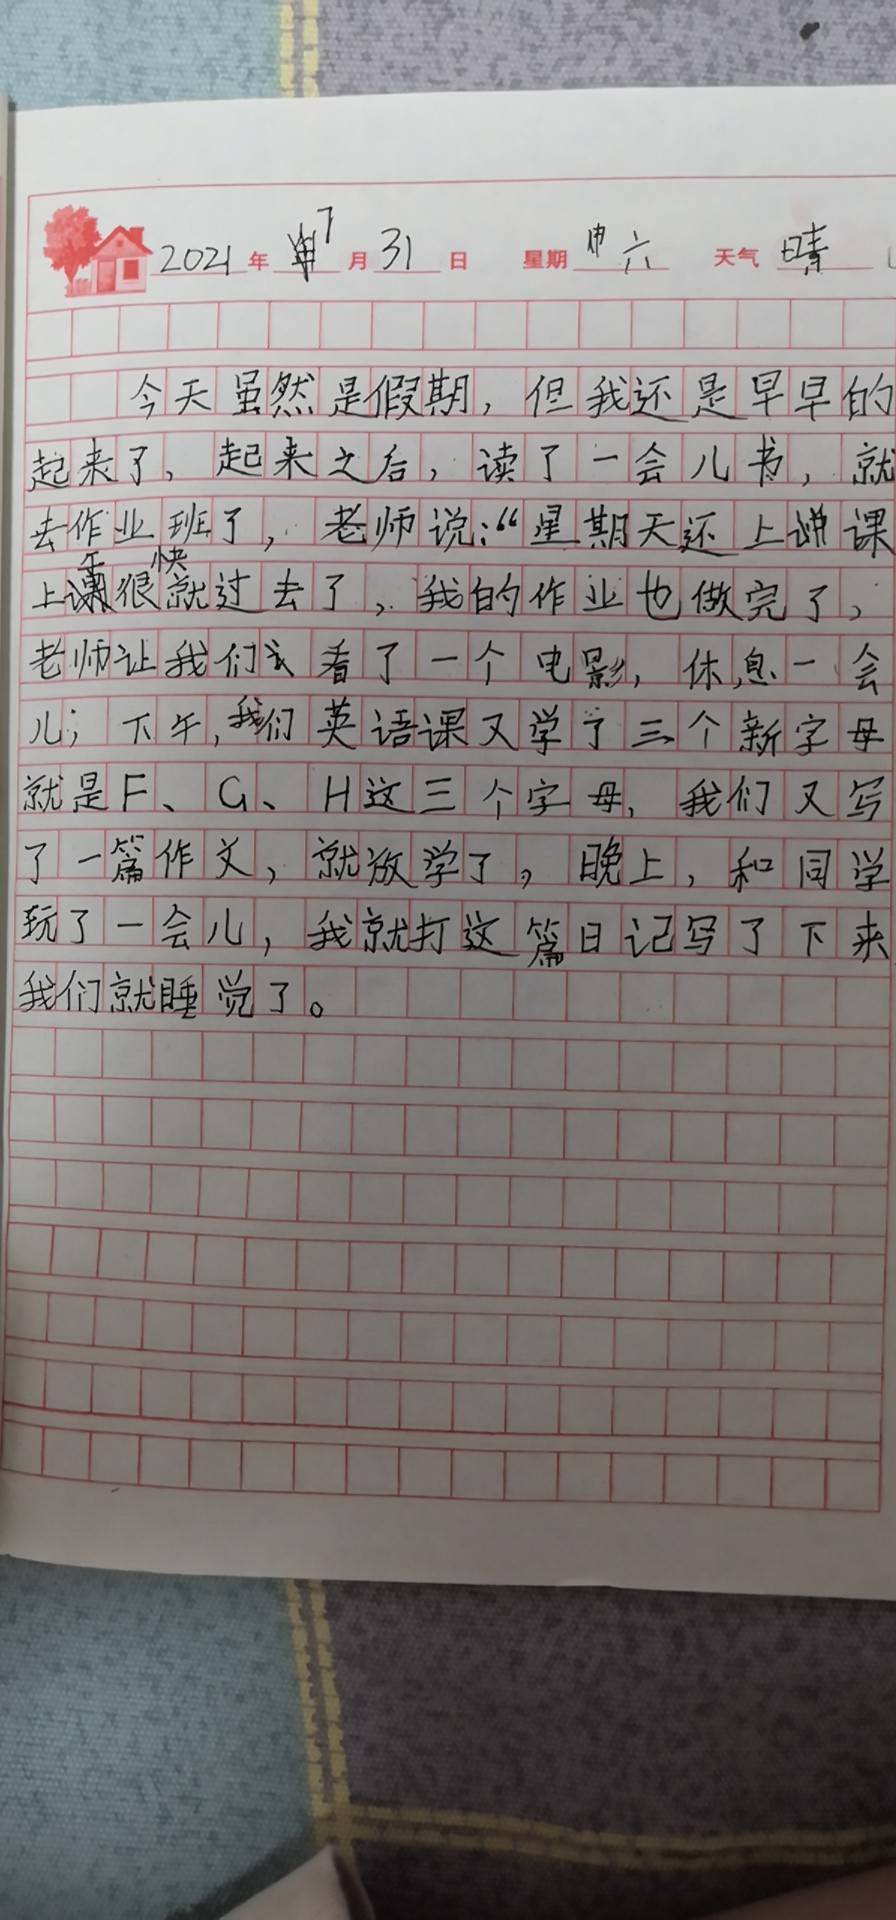 2021年 7月31日 星期 六 天气 晴
今天虽然是假期，但我还是早早的
起来了，起来之后，读了一会儿书，就
去作业班了，老师说：“星期天还上课
上午很快就过去了，我的作业也做完了，
老师让我们看了一个电影，休息一会
儿；下午，我们英语课又学了三个新字母
就是F、G、H这三个字母，我们又写
了一篇作文，就放学了，晚上，和同学
玩了一会儿，我就打这篇日记写了下来
我们就睡觉了。